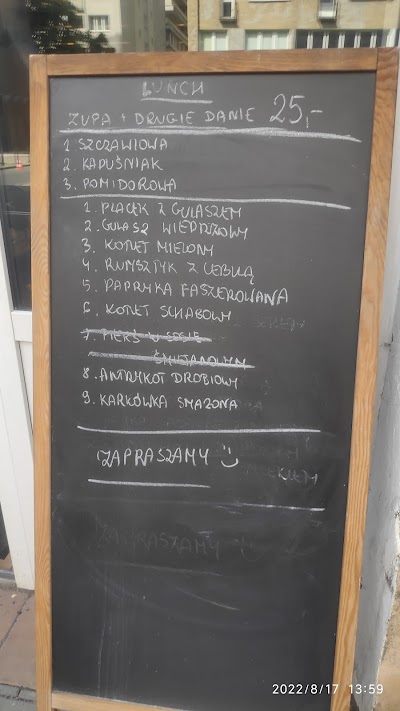 LUNCH
ZUPA + DRUGIE DANIE 25,-
1 SZCZAWIOWA
2. KAPUŚNIAK
3. POMIDOROWA
1. PLACEK Z GULASZEM
2. GULASZ WIEPRZOWY
3. KOTLET MIELONY
4. RUMSZTYK Z CEBULĄ
5. PAPRYKA FASZEROWANA
6. KOTLET SCHABOWY
7. PIERŚ W SOSIE
ŚMIETANOWYM
8. ANTRYKOT DROBIOWY
9. KARKÓWKA SMAŻONA
ZAPRASZAMY
ZAPRASZAMY
2022/8/17 13:59